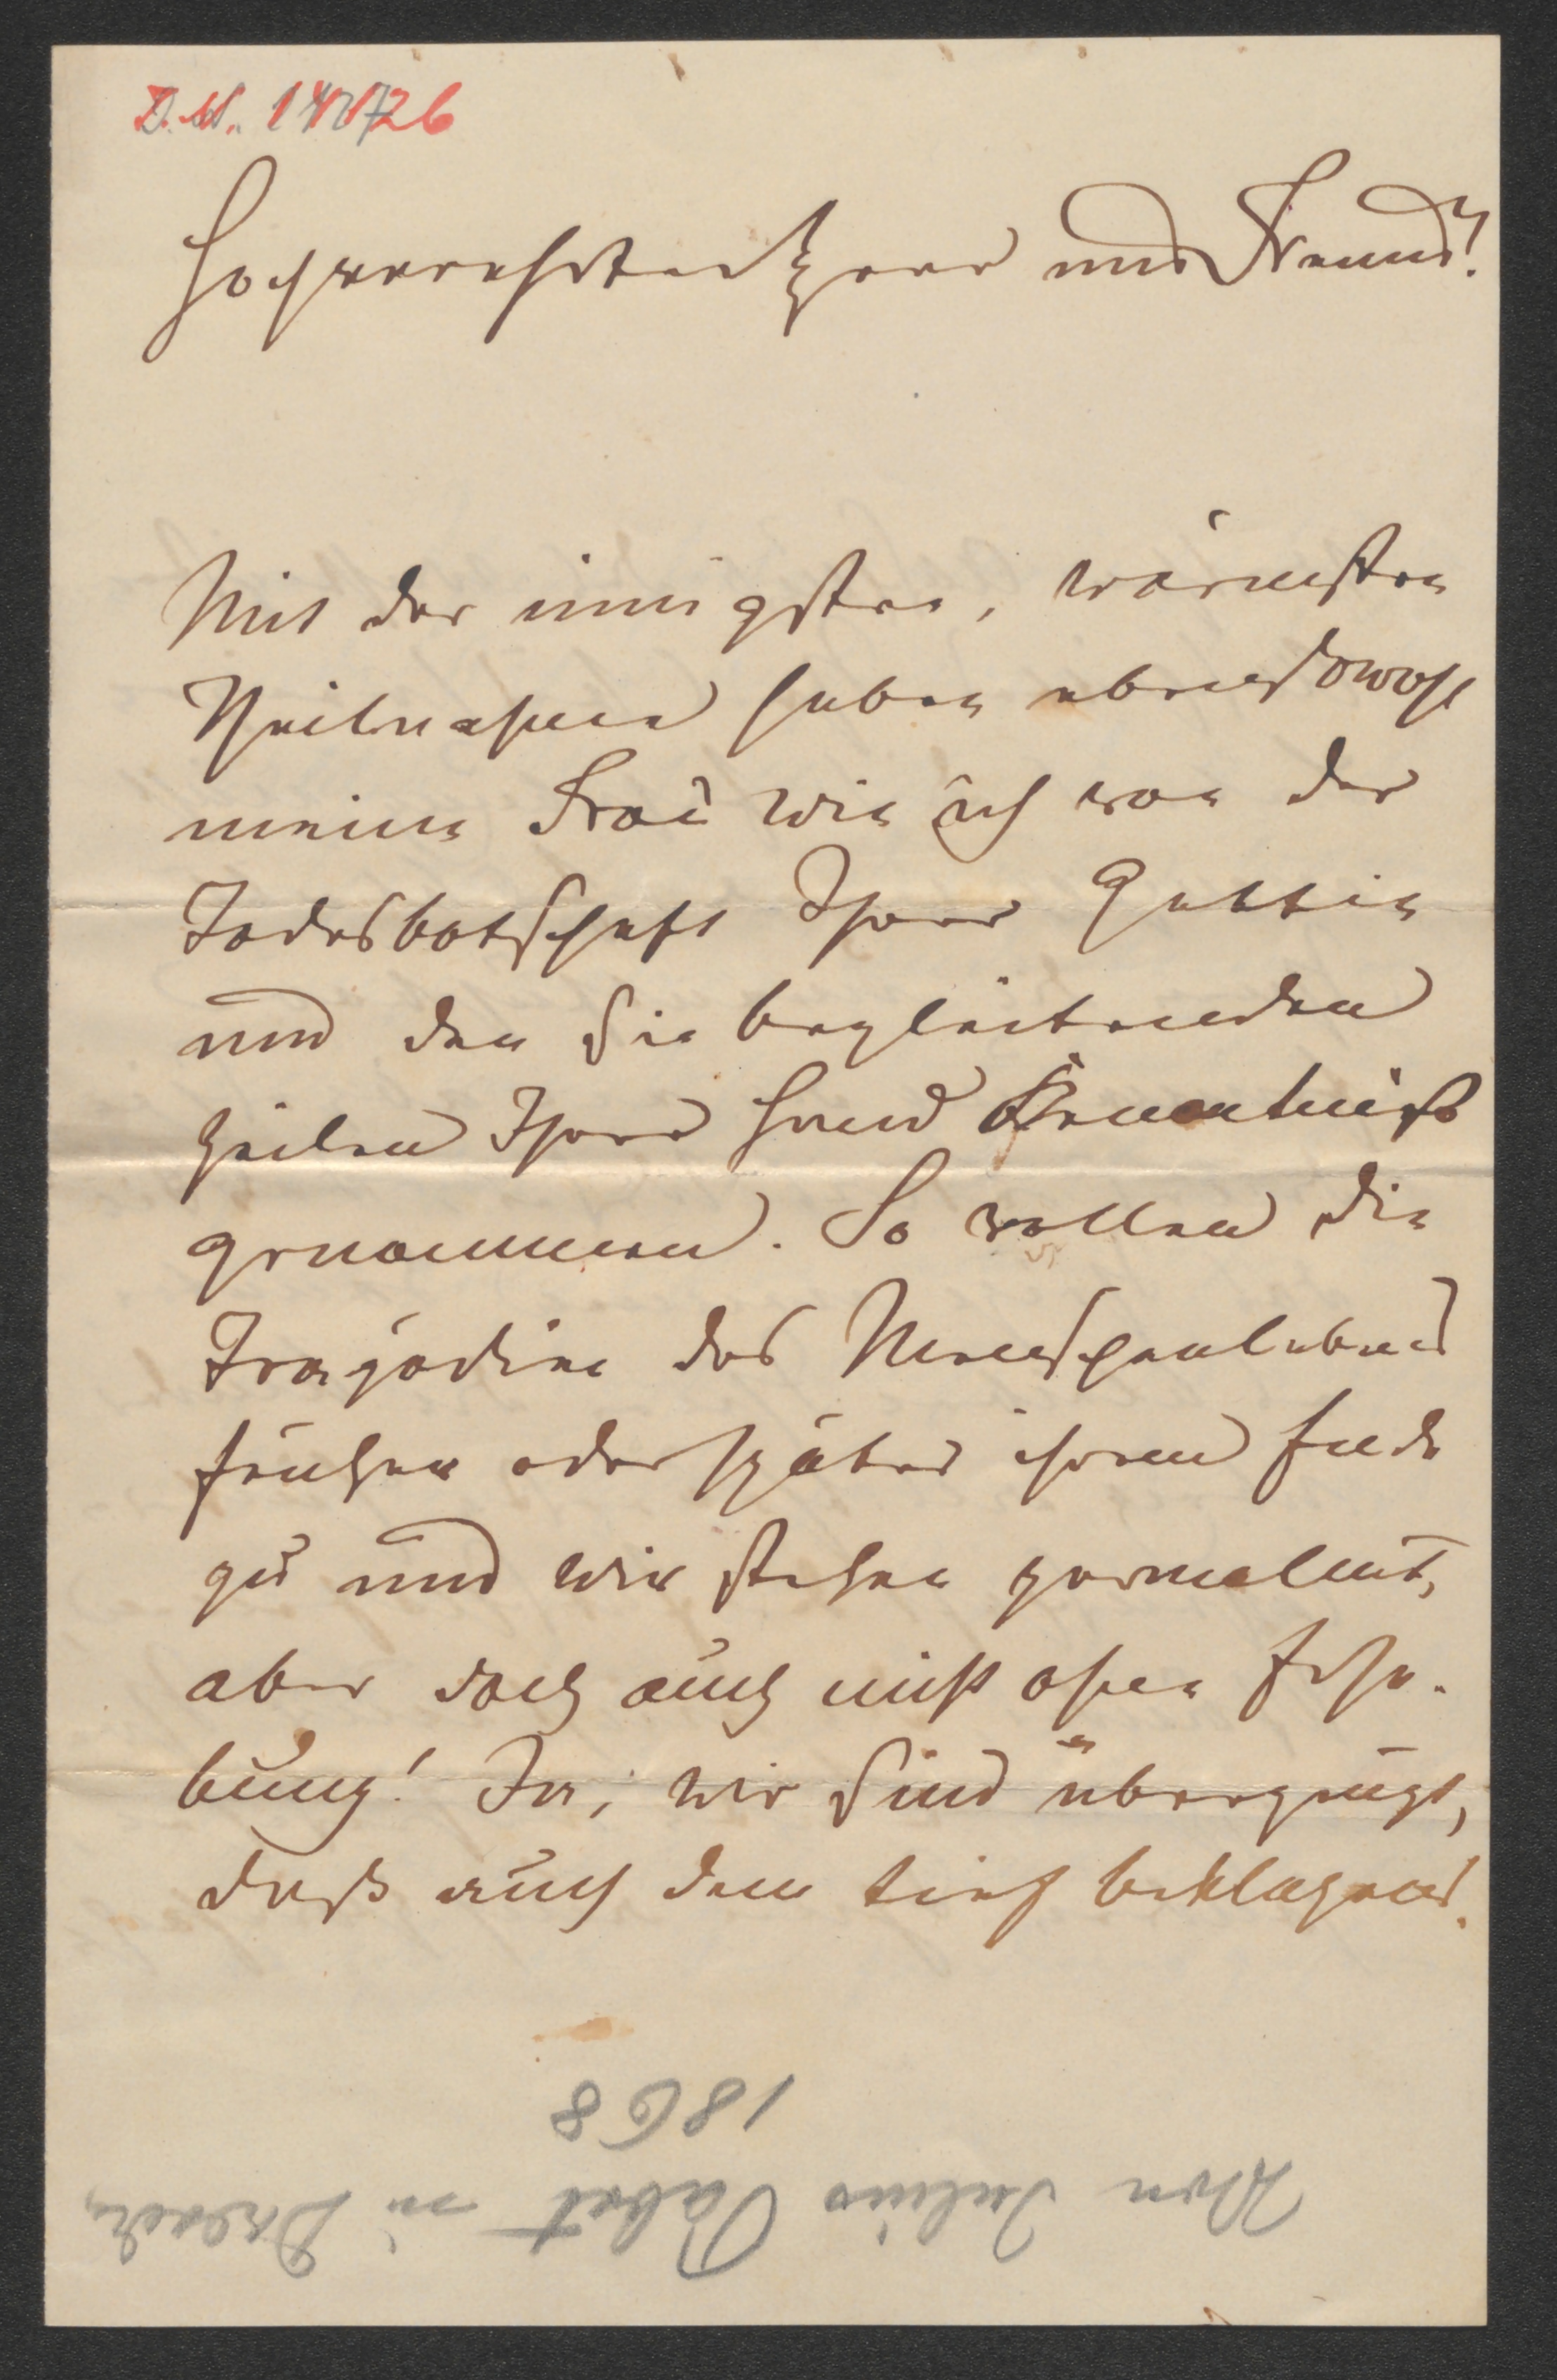 D. N. 147726
Hochverehrter Herr und Freund!
Mit der innigsten, wärmsten
Theilnahme haben ebensowohl
meine Frau wie ich von der
Todesbotschaft Ihrer Gattin
und den sie begleitenden
Zeilen Ihrer Hand Kenntniß
genommen. So rollen die
Tragödien des Menschenlebens
früher oder später ihrem Ende
zu und wir stehen zermalmt,
aber doch auch nicht ohne Erhe-
bung! Ja, wir sind überzeugt,
daß auch dem tief beklagens-
Von Julius Pabst in Dresden,
1868